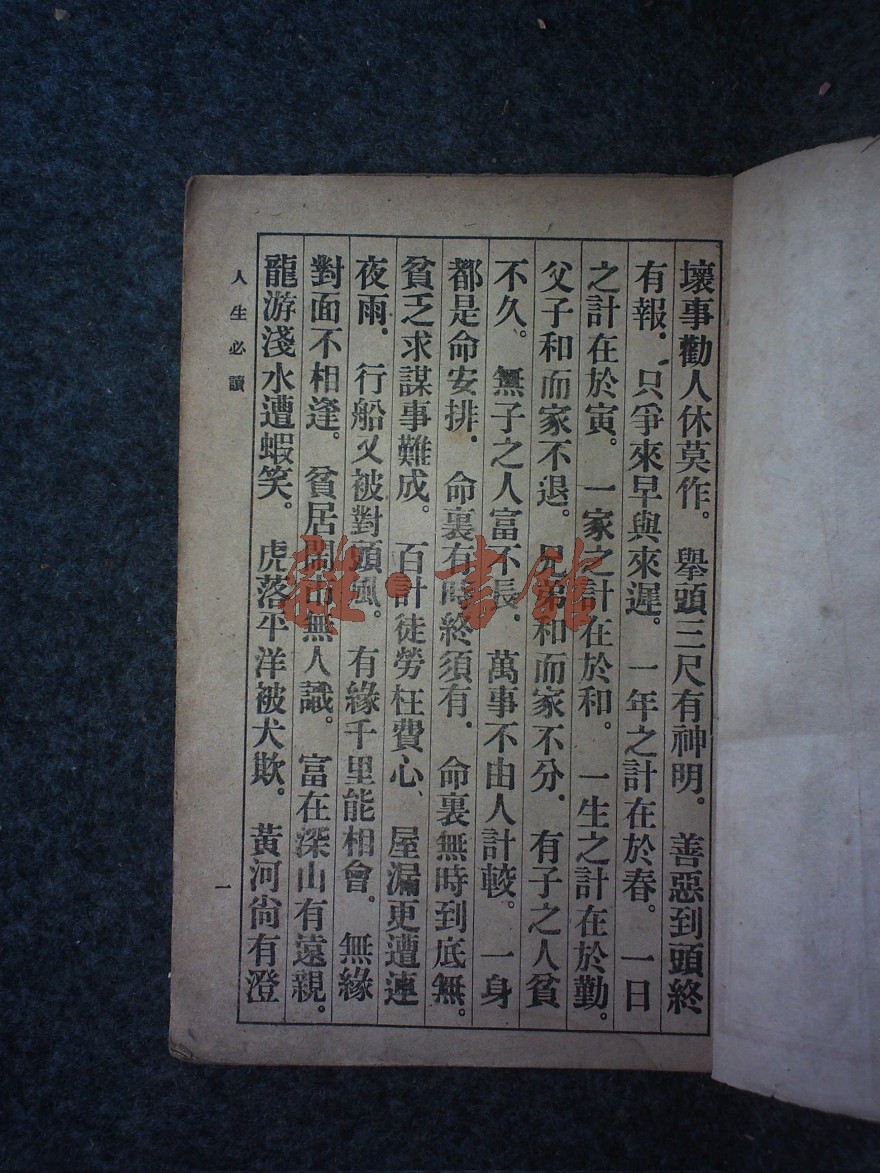 壞事勸人休莫作。舉頭三尺有神明。善惡到頭終
有報．只爭來早與來遲。一年之計在於春。一日
之計在於寅。一家之計在於和。一生之計在於勤。
父子和而家不退。兄弟和而家不分．有子之人貧
不久。無子之人富不長．萬事不由人計較。一身
都是命安排．命裏有時終須有．命裏無時到底無。
貧乏求謀事難成。百計徒勞枉費心、屋漏更遭連
夜雨．行船又被對頭風。有緣千里能相會。無緣
對面不相逢。貧居鬧市無人識。富在深山有遠親。
龍游淺水遭蝦笑。虎落平洋被犬欺。黃河尙有澄
人生必讀
一
雜·書館